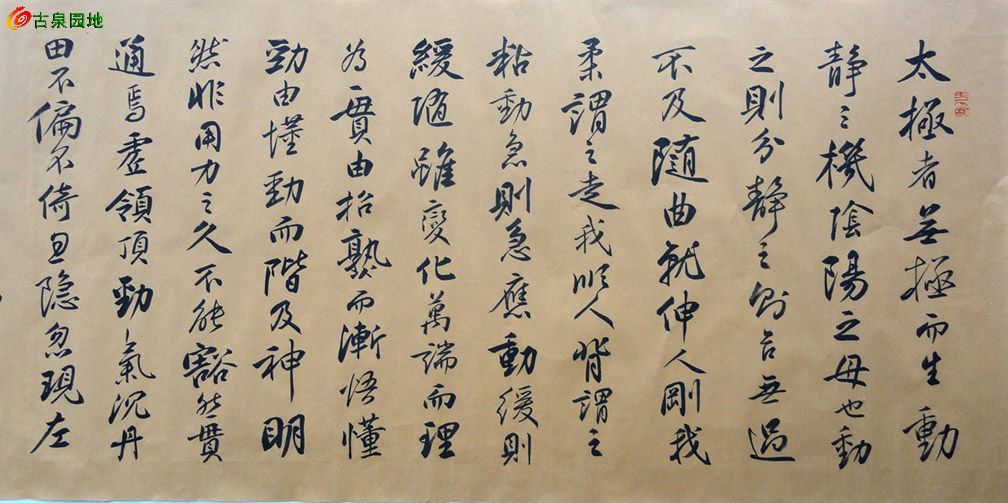 古泉园地
太極者無極而生動
静之機陰陽之母也動
之則分静之則合無過
不及随曲就伸人剛我
柔謂之走我順人背謂之
粘動急則急應動緩則
緩随雖變化萬端而理
為一貫由招熟而漸悟懂
勁由懂勁而階及神明
然非用力之久不能豁然貫
通焉虚領頂勁氣沉丹
田不偏不倚忽隐忽現左